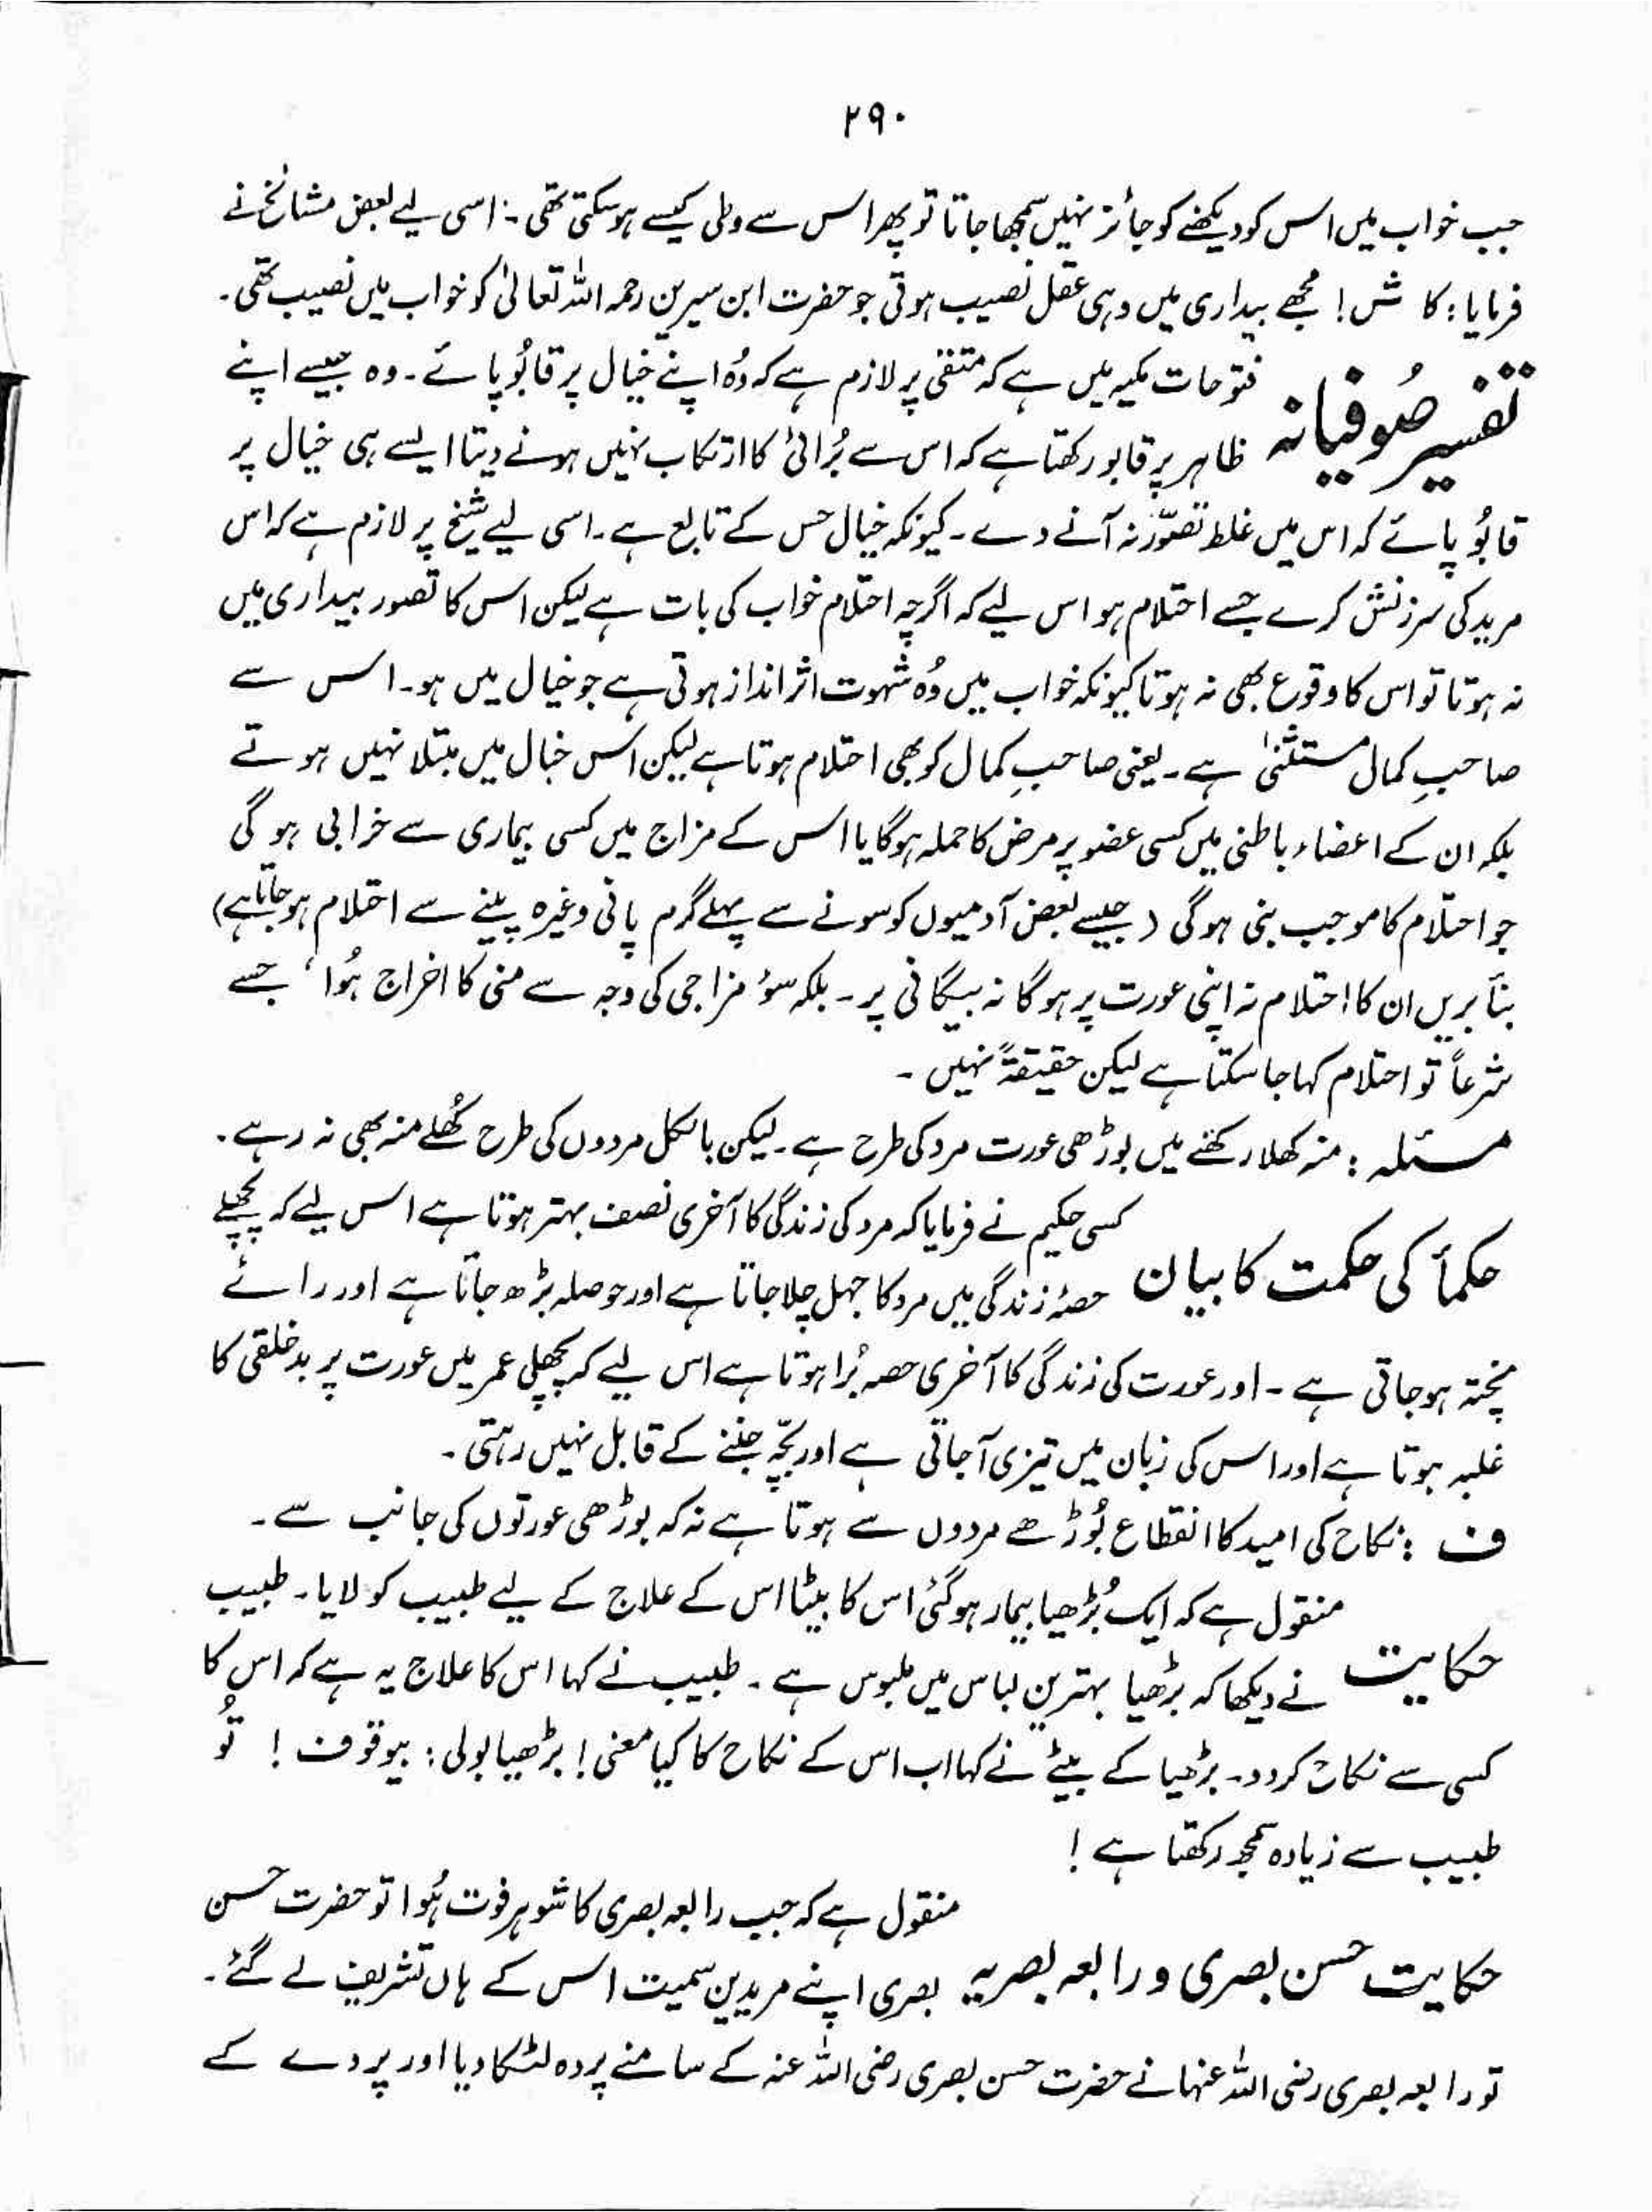 ۲۹۰
جب خواب میں اس کو دیکھنے کو جائز نہیں سمجھا جاتا تو پھر اس سے وطی کیسے ہوسکتی تھی ۔ اسی لیے بعض مشائخ نے
فرمایا : کاش ! مجھے بیداری میں وہی عقل نصیب ہوتی جو حضرت ابن سیرین رحمہ اللہ تعالیٰ کو خواب میں نصیب تھی ۔
تفسیر صُوفیانہ
فتوحات مکیہ میں ہے کہ متقی پر لازم ہے کہ وُہ اپنے خیال پر قابُو پائے ۔ وہ جیسے اپنے
ظاہر پر قابو رکھتا ہے کہ اس سے بُرائی کا ارتکاب نہیں ہونے دیتا ایسے ہی خیال پر
قابُو پائے کہ اس میں غلط تصوّر نہ آنے دے ۔ کیونکہ خیال حس کے تابع ہے ۔ اسی لیے شیخ پر لازم ہے کہ اس
مرید کی سرزنش کرے جسے احتلام ہو اس لیے کہ اگرچہ احتلام خواب کی بات ہے لیکن اس کا تصور بیداری میں
نہ ہوتا تو اس کا وقوع بھی نہ ہوتا کیونکہ خواب میں وُہ شہوت اثر انداز ہوتی ہے جو خیال میں ہو ۔ اس سے
صاحبِ کمال مستثنیٰ ہے ۔ یعنی صاحبِ کمال کو بھی احتلام ہوتا ہے لیکن اس خیال میں مبتلا نہیں ہوتے
بلکہ ان کے اعضاء باطنی میں کسی عضو پر مرض کا حملہ ہوگا یا اس کے مزاج میں کسی بیماری سے خرابی ہوگی
جو احتلام کا موجب بنی ہوگی ( جیسے بعض آدمیوں کو سونے سے پہلے گرم پانی وغیرہ پینے سے احتلام ہوجاتا ہے )
بنأ بریں ان کا احتلام نہ اپنی عورت پر ہوگا نہ بیگانی پر ۔ بلکہ سوٗ مزاجی کی وجہ سے منی کا اخراج ہُوا ، جسے
شرعاً تو احتلام کہا جا سکتا ہے لیکن حقیقۃً نہیں ۔
مسئلہ : منہ کھلا رکھنے میں بوڑھی عورت مرد کی طرح ہے ۔ لیکن بالکل مردوں کی طرح کُھلے منہ بھی نہ رہے ۔
حکمأ کی حکمت کا بیان
کسی حکیم نے فرمایا کہ مرد کی زندگی کا آخری نصف بہتر ہوتا ہے اس لیے کہ پچھلے
حصۂ زندگی میں مرد کا جہل چلا جاتا ہے اور حوصلہ بڑھ جاتا ہے اور رائے
پختہ ہوجاتی ہے ۔ اور عورت کی زندگی کا آخری حصہ بُرا ہوتا ہے اس لیے کہ پچھلی عمر میں عورت پر بدخلقی کا
غلبہ ہوتا ہے اور اس کی زبان میں تیزی آجاتی ہے اور بچّہ جننے کے قابل نہیں رہتی ۔
ف : نکاح کی امید کا انقطاع بُوڑھے مردوں سے ہوتا ہے نہ کہ بوڑھی عورتوں کی جانب سے ۔
حکایت
منقول ہے کہ ایک بُڑھیا بیمار ہوگئی اس کا بیٹا اس کے علاج کے لیے طبیب کو لایا ۔ طبیب
نے دیکھا کہ بڑھیا بہترین لباس میں ملبوس ہے ۔ طبیب نے کہا اس کا علاج یہ ہے کہ اس کا
کسی سے نکاح کردو ۔ بڑھیا کے بیٹے نے کہا اب اس کے نکاح کا کیا معنی ! بڑھیا بولی : بیوقوف ! تُو
طبیب سے زیادہ سمجھ رکھتا ہے !
حکایت حسن بصری و رابعہ بصریہ
منقول ہے کہ جب رابعہ بصری کا شوہر فوت ہُوا تو حضرت حسن
بصری اپنے مریدین سمیت اس کے ہاں تشریف لے گئے ۔
تو رابعہ بصری رضی اللہ عنہا نے حضرت حسن بصری رضی اللہ عنہ کے سامنے پردہ لٹکا دیا اور پردے کے